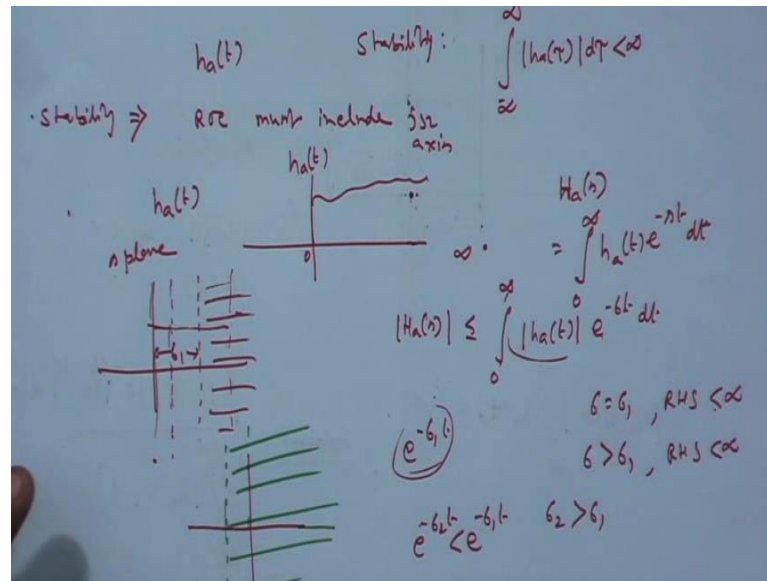 ha(t) Stability: ∫_{-∞}^{∞} |ha(τ)| dτ < ∞
Stability ⇒ ROC must include jΩ
axis
ha(t)
ha(t)
s plane
0 ∞
Ha(s)
= ∫_0^∞ ha(t) e^{-st} dt
|Ha(s)| ≤ ∫_0^∞ |ha(t)| e^{-σt} dt
σ1
e^{-σ1t}
σ = σ1, RHS < ∞
σ > σ1, RHS < ∞
e^{-σ2t} < e^{-σ1t} σ2 > σ1